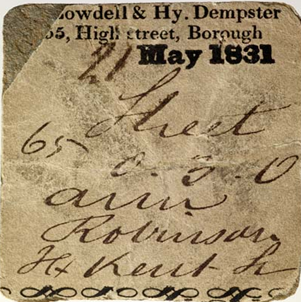 owdell & Hy. Dempster
65, High street, Borough
21 May 1831
Sheet
65 0 . 3 . 0
ann
Robinson
Kent St